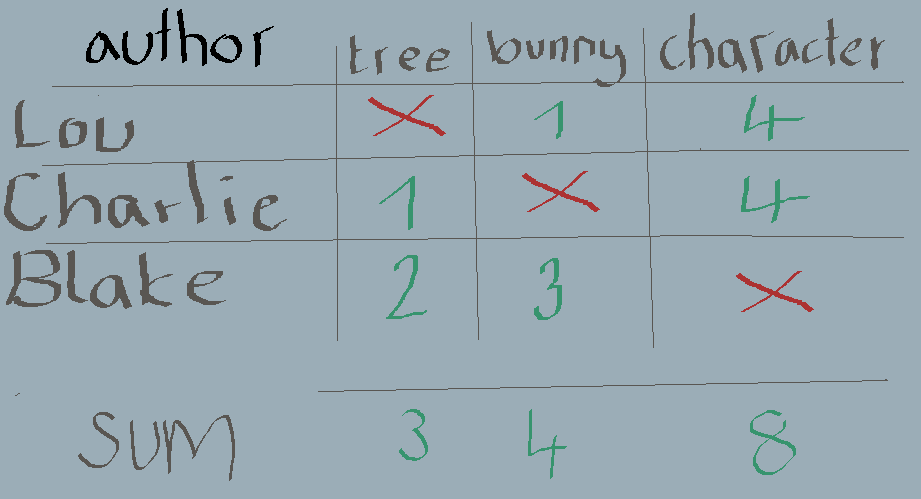 author tree bunny character
Lou X 1 4
Charlie 1 X 4
Blake 2 3 X
SUM 3 4 8